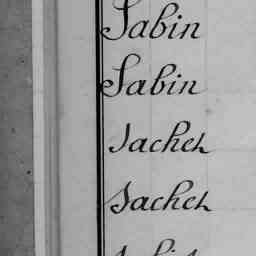 Sabin
Sabin
Sachet
Sachet